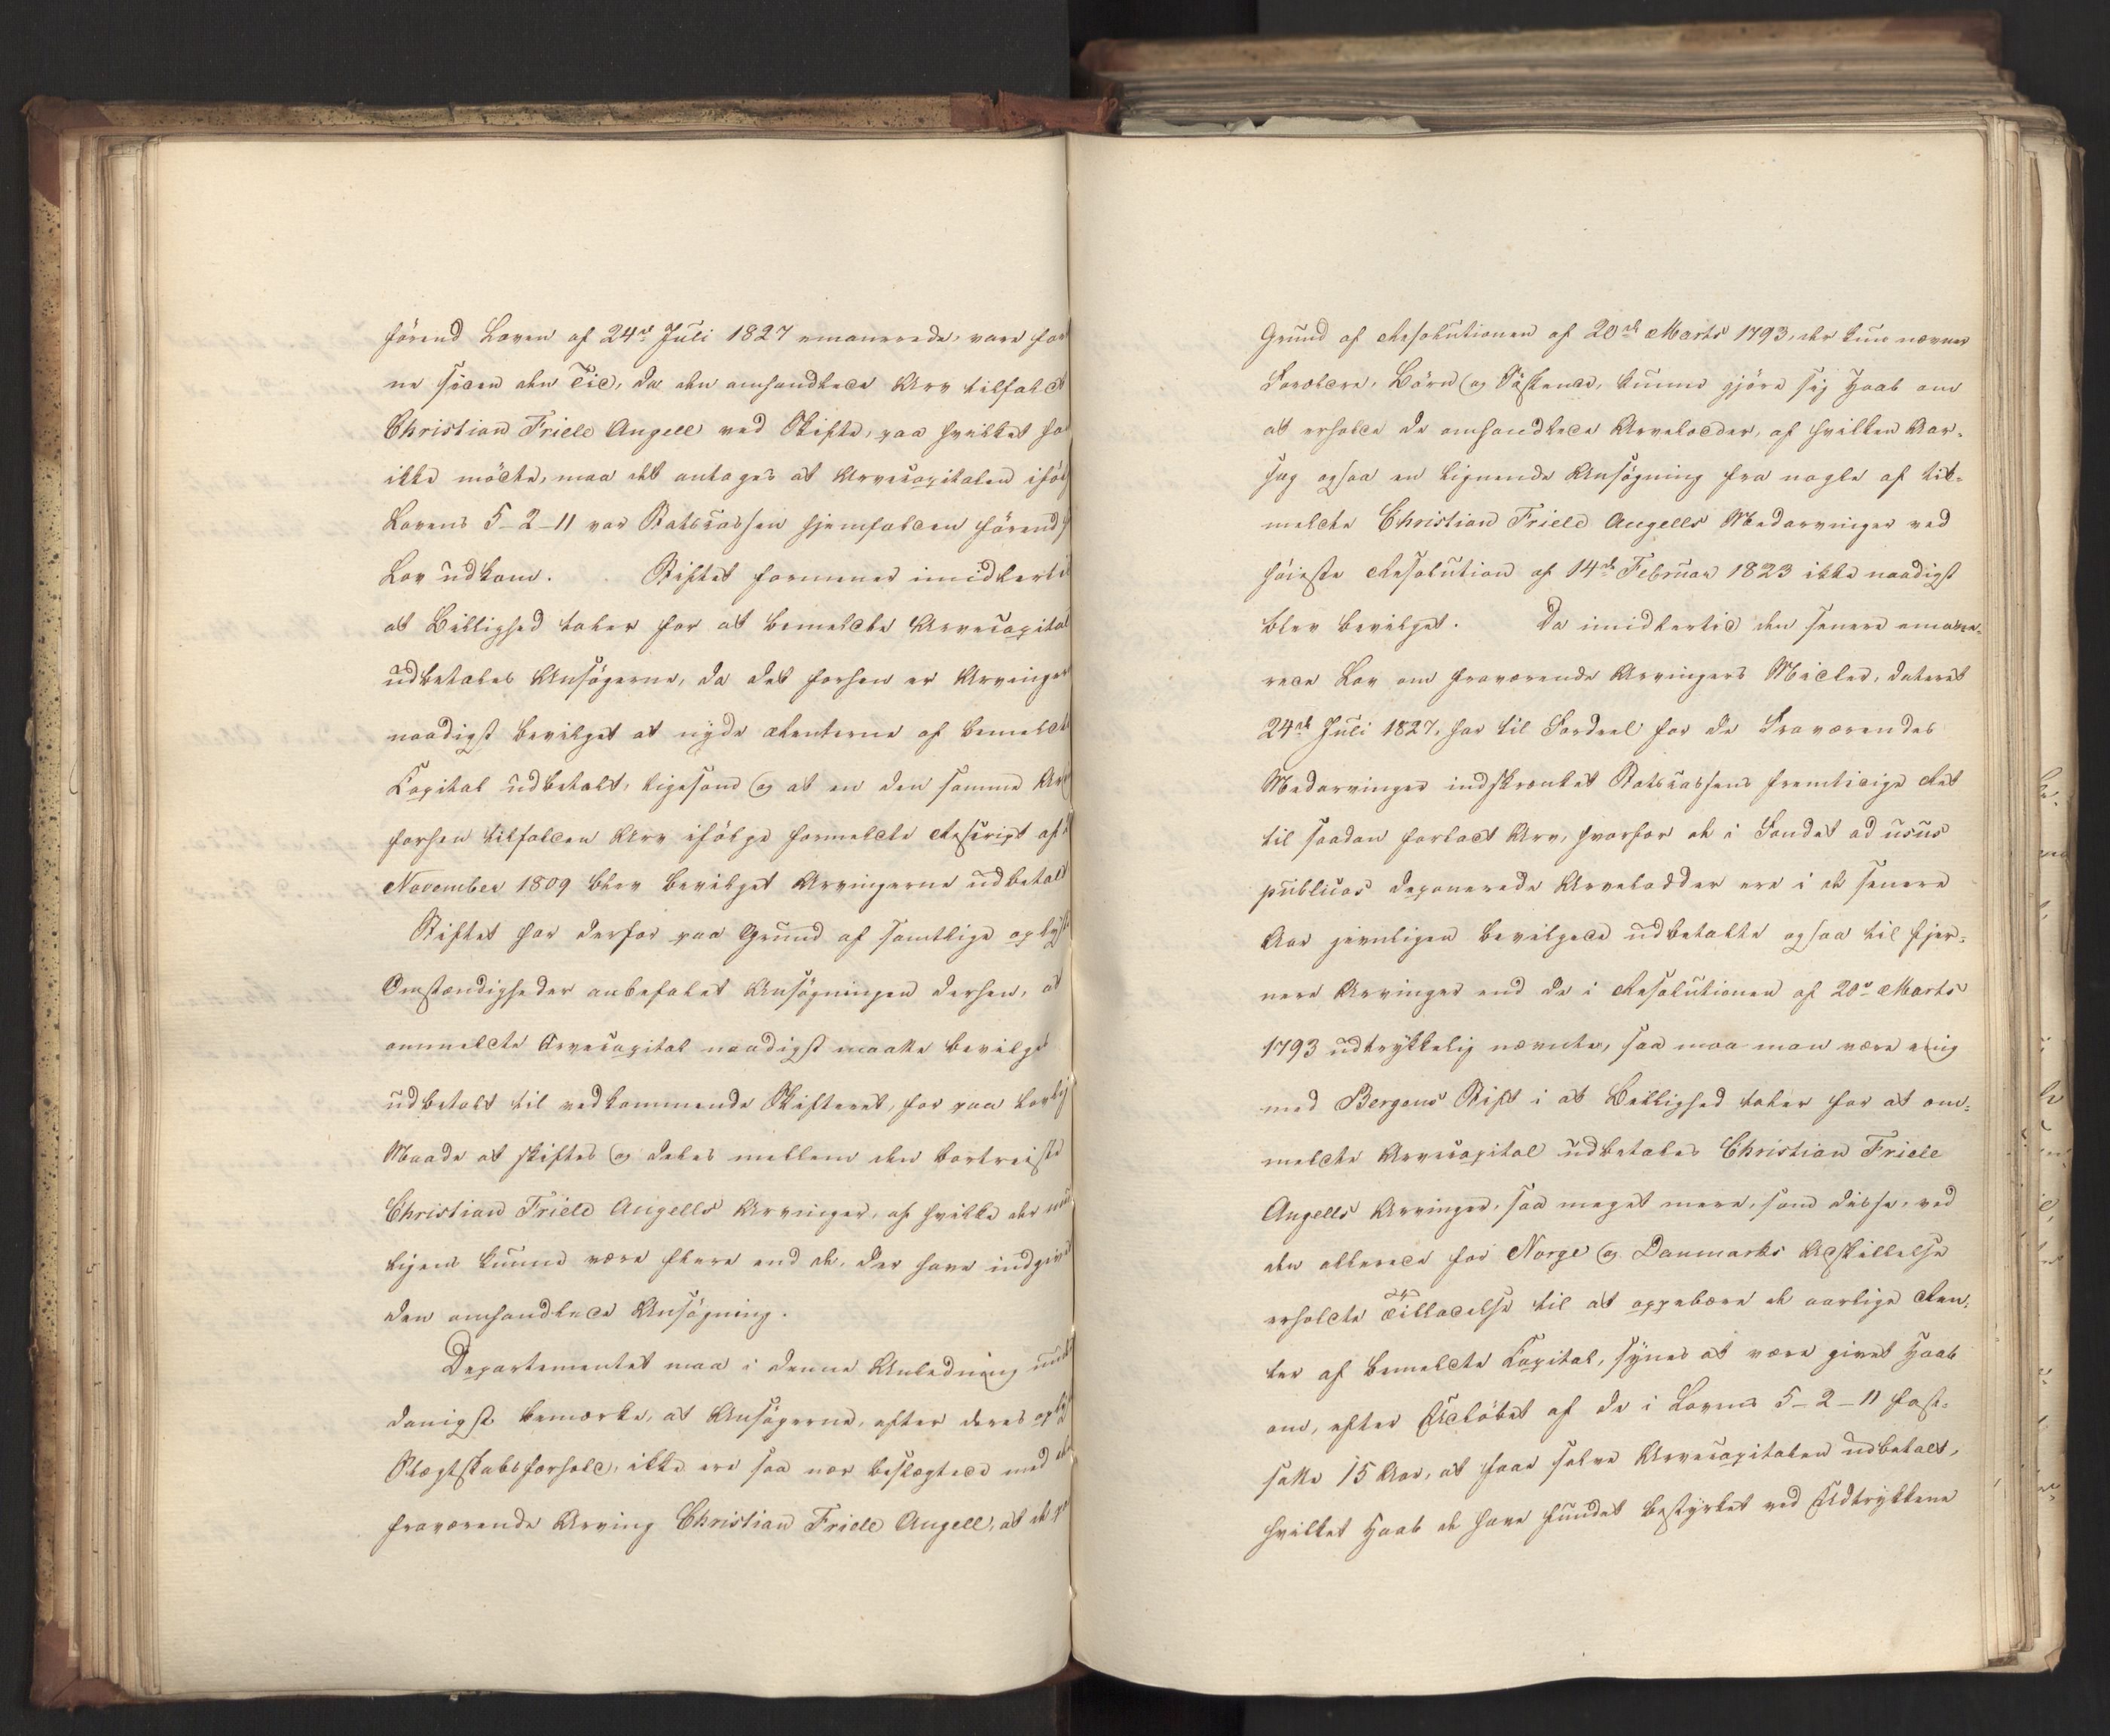 förend Loven af 24de Juli 1827 emanerede, vare for
ne siden den Tid, da den omhandlede Arv tilfaldt
Christian Friele Angell ved Skifte, paa hvilket ha
ikke mödte, maa det antages at Arvecapitalen iföl
Lovens 5-2-11 var Statscassen hjemfalden förend
Lov udkom. Stiftet formener imidlerti
at Billighed taler for at bemeldte Arvecapital
udbetales Ansögerne, da det forhen er Arvinger
naadigst bevilget at nyde Renterne af bemeldte
Capital udbetalt, ligesom og at en den samme Arv
forhen tilfalden Arv ifölge formeldte Rescript af
November 1809 blev bevilget Arvingerne udbetalt
Stiftet har derfor paa Grund af samtlige oplyste
Omstændigheder anbefalet Ansögningen derhen, at
ommeldte Arvecapital naadigst maatte bevilges
udbetalt til vedkommende Skifteret, for paa lovlig
Maade at skiftes og deles mellem den bortreiste
Christian Friele Angells Arvinger, af hvilke der mu
ligens kunne være flere end de, der have indgivet
den omhandlede Ansögning.
Departementet maa i denne Anledning under
danigst bemærke, at Ansögerne, efter deres oplyste
Slægtskabsforhold, ikke ere saa nær beslægtede med den
fraværende Arving Christian Friele Angell, at de paa
Grund af Resolutionen af 20de Marts 1793, der kun nævner
Forældre, Börn og Södskende, kunne gjöre sig Haab om
at erholde de omhandlede Arvelodder, af hvilken Aar-
sag ogsaa en lignende Ansögning fra nogle af bit-
meldte Christian Friele Angells Medarvinger ved
höieste Resolution af 14de Februar 1823 ikke naadigst
blev bevilget. Da imidlertid den senere emane-
rede Lov om fraværende Arvingers Midler, dateret
24de Juli 1827, har til Fordeel for de Fraværendes
Medarvinger indskrænket Statscassens fremtidige Ret
til saadan forladt Arv, hvorfor de i Fondet ad usus
publicos deponerede Arvelodder ere i de senere
Aar jevnligen bevilgede udbetalte ogsaa til fjer-
nere Arvinger end de i Resolutionen af 20de Marts
1793 udtrykkelig nævnte, saa maa man være enig
med Bergens Stift i at Billighed taler for at om-
meldte Arvecapital udbetales Christian Friele
Angells Arvinger, saa meget mere, som disse, ved
den allerede for Norge og Danmarks Adskillelse
erholdte Tilladelse til at oppebære de aarlige Ren-
ter af bemeldte Capital, synes at være givet Haab
om, efter Udlöbet af de i Lovens 5-2-11 fast-
satte 15 Aar, at faae selve Arvecapitalen udbetalt,
hvilket Haab de have fundet bestyrket ved Udtrykkene